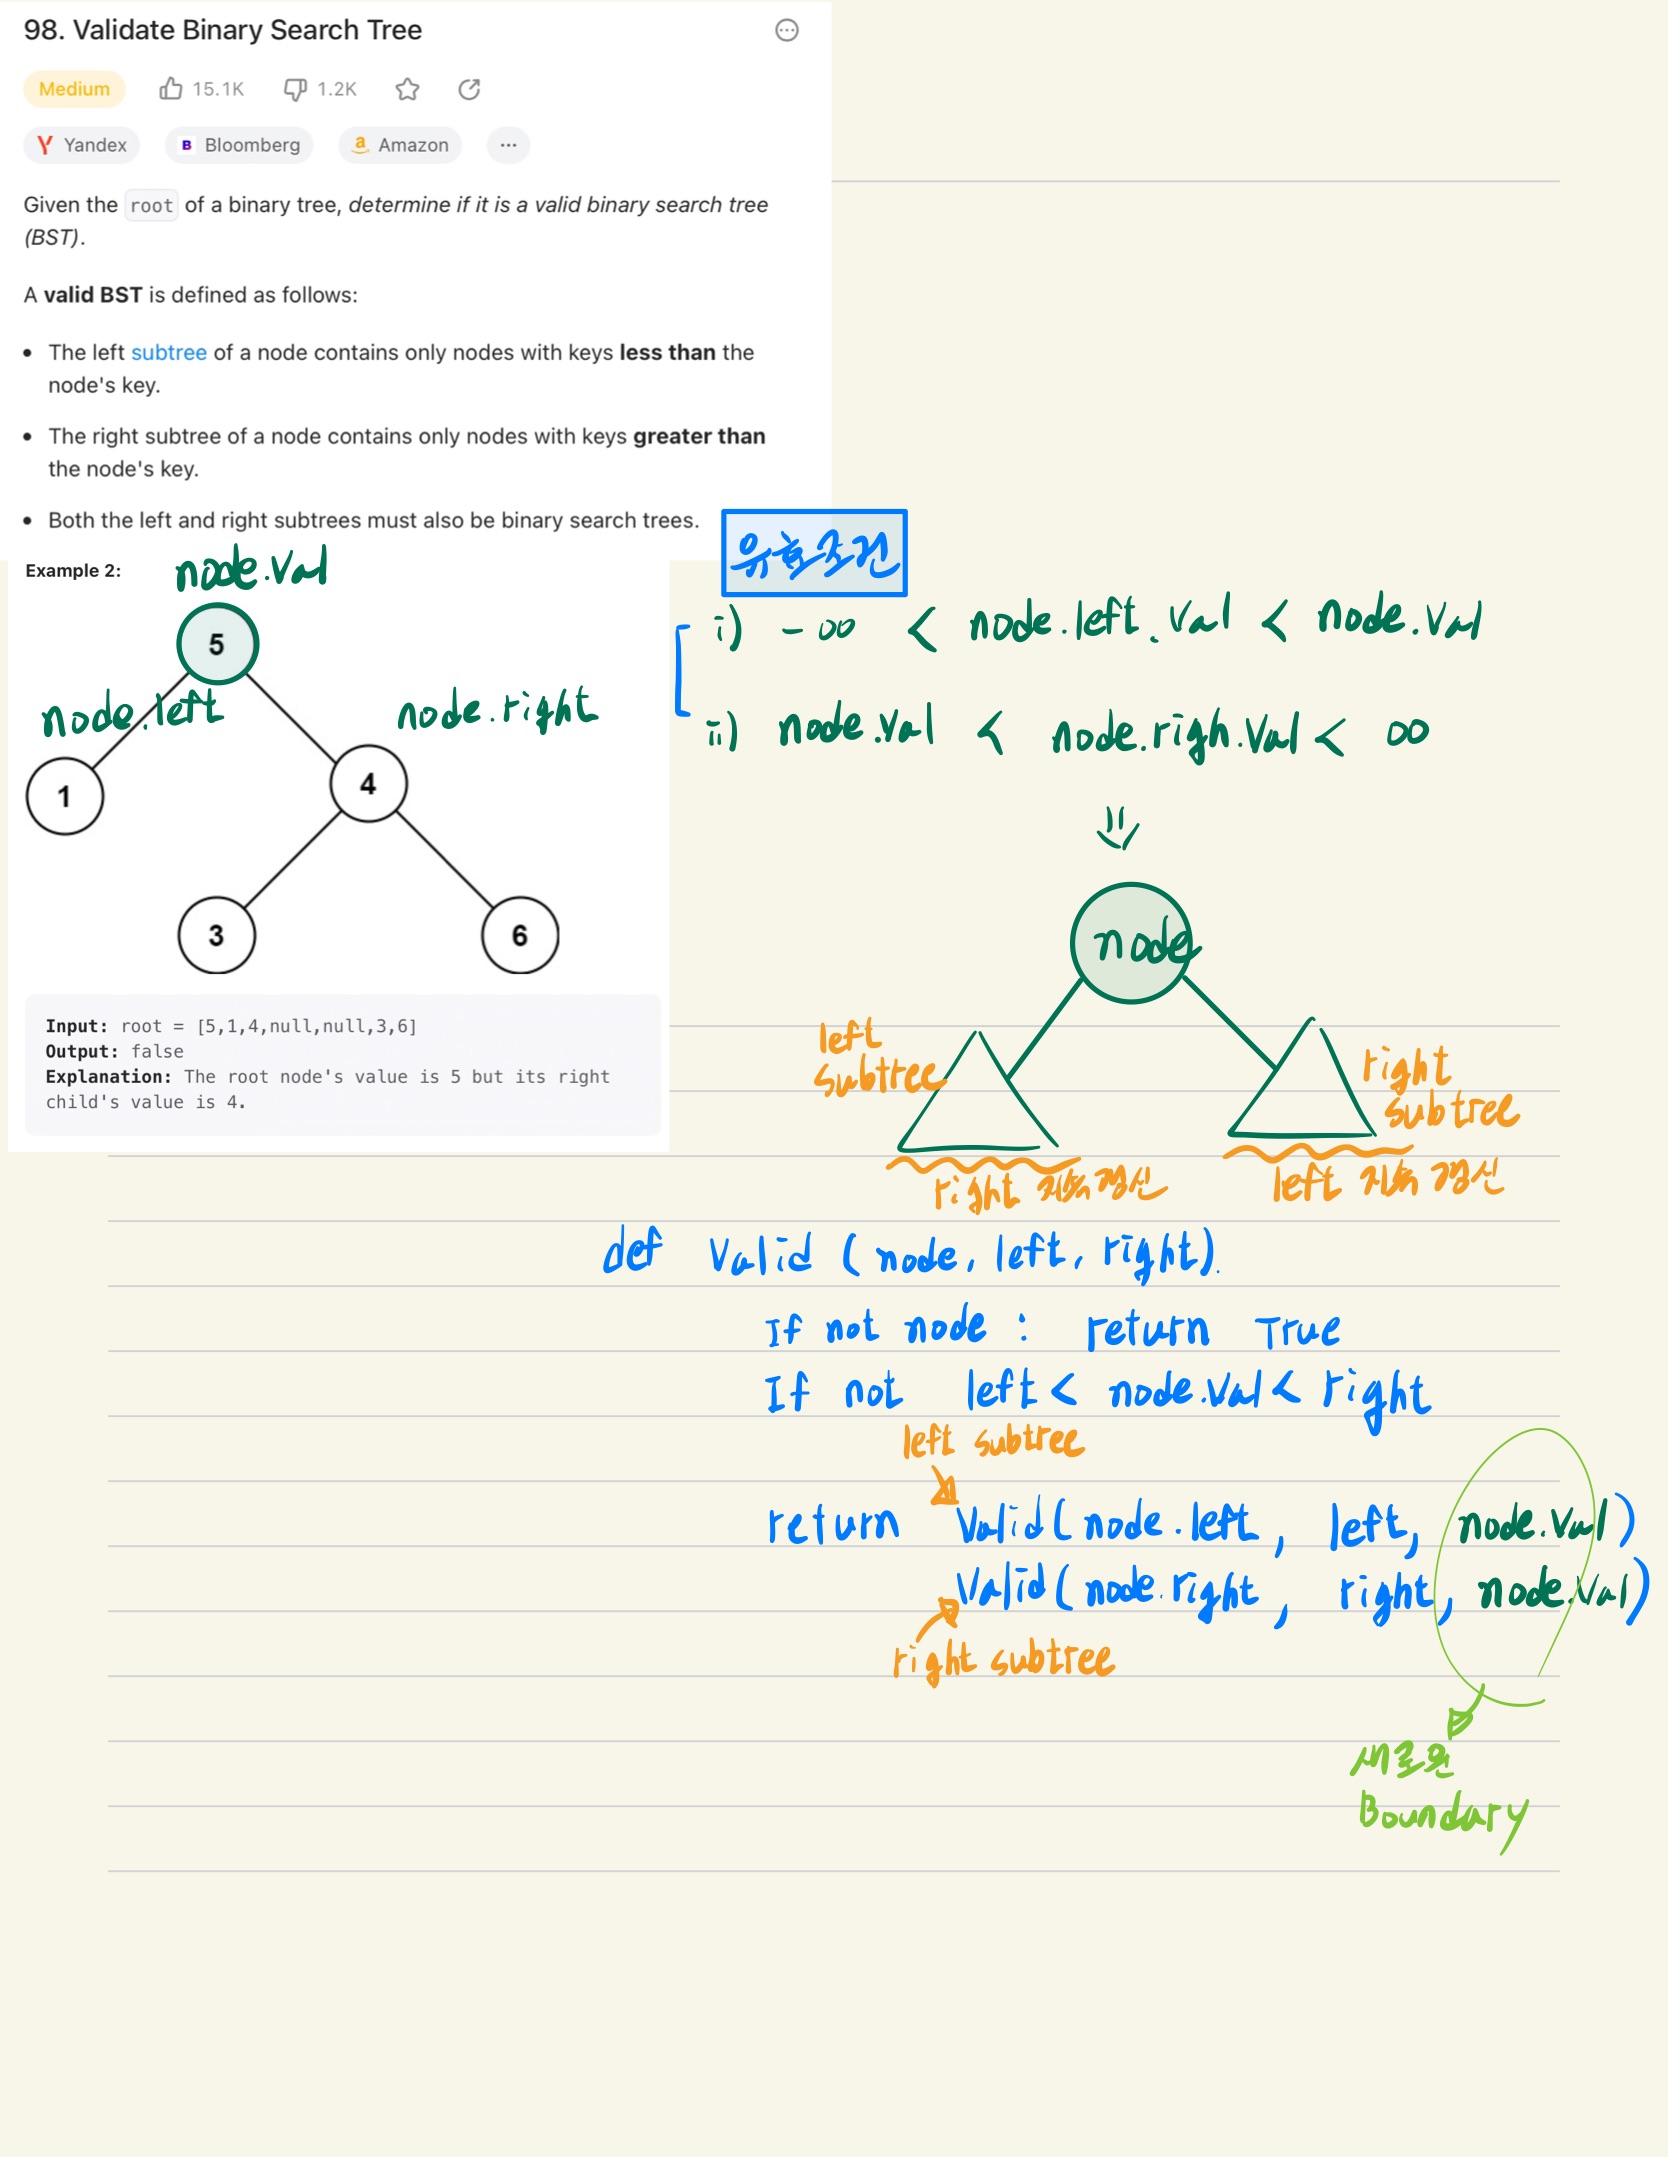 98. Validate Binary Search Tree
Medium 15.1K 1.2K
Yandex Bloomberg Amazon ...
Given the root of a binary tree, determine if it is a valid binary search tree
(BST).
A valid BST is defined as follows:
• The left subtree of a node contains only nodes with keys less than the
node's key.
• The right subtree of a node contains only nodes with keys greater than
the node's key.
• Both the left and right subtrees must also be binary search trees.
Example 2:
node.val
5
node.left
node.right
1
4
3
6
Input: root = [5,1,4,null,null,3,6]
Output: false
Explanation: The root node's value is 5 but its right
child's value is 4.
유효조건
i) -∞ < node.left.val < node.val
ii) node.val < node.righ.val < ∞
node
left
subtree
right
subtree
right 계속 갱신
left 계속 갱신
def valid (node, left, right).
If not node : return True
If not left < node.val < right
left subtree
return valid(node.left, left, node.val)
valid(node.right, right, node.val)
right subtree
새로운
Boundary